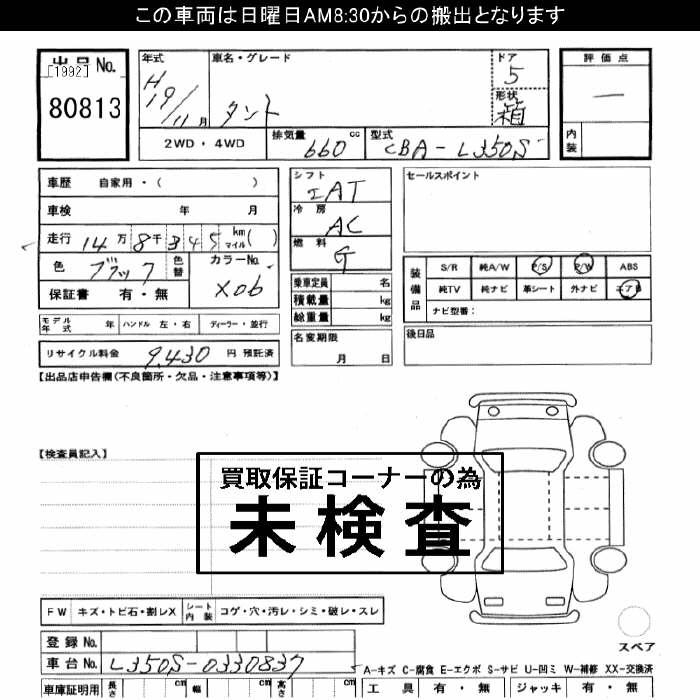 この車両は日曜日AM8:30からの搬出となります
出品No.
[1992]
80813
年式 H19/11月
車名・グレード タント
ドア 5
形状 箱
評価点 ー
内装
2WD・4WD
排気量 660 cc
型式 CBA-L350S
車歴 自家用・( )
車検 年 月
走行 14万8千345 km マイル( )
色 ブラック 色替
カラーNo. X06
保証書 有・無
シフト IAT
冷房 AC
燃料 G
乗車定員 名
積載量 kg
総重量 kg
名変期限 月 日
セールスポイント
装備品
S/R 純A/W P/S P/W ABS
純TV 純ナビ 革シート 外ナビ エアB
ナビ型番:
後日品
モデル年式 年 ハンドル 左・右 ディーラー・並行
リサイクル料金 9,430 円 預託済
【出品店申告欄(不良箇所・欠品・注意事項等)】
【検査員記入】
買取保証コーナーの為
未検査
FW キズ・トビ石・割レX シート内装 コゲ・穴・汚レ・シミ・破レ・スレ
スペア
登録No.
車台No. L350S-0330837
A-キズ C-腐食 E-エクボ S-サビ U-凹ミ W-補修 XX-交換済
車庫証明用 長さ cm 幅 cm 高さ cm
工具 有・無 ジャッキ 有・無